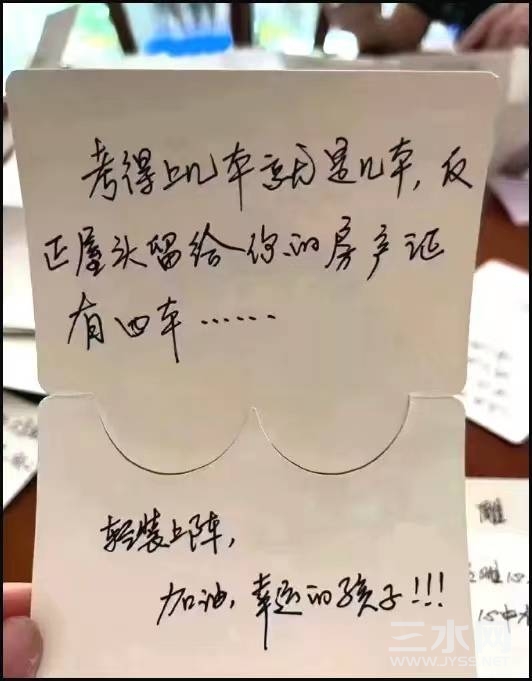 考得上几本就是几本,反
正屋头留给你的房产证
有四本……
轻装上阵,
加油,幸运的孩子!!!
三水网
WWW.JYSS.NET